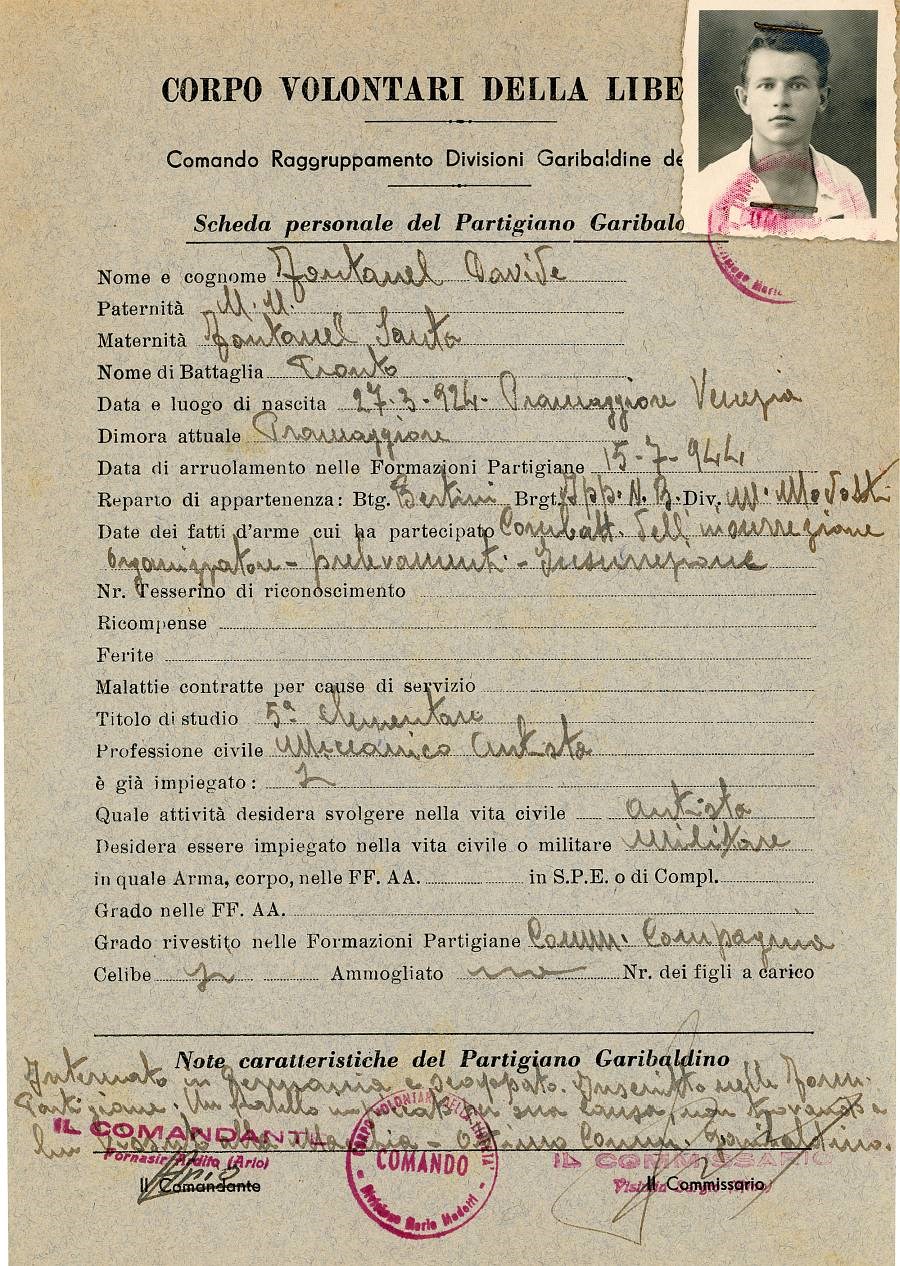 CORPO VOLONTARI DELLA LIBE
Comando Raggruppamento Divisioni Garibaldine de
Scheda personale del Partigiano Garibald
Nome e cognome Fontanel Davide
Paternità N. N.
Maternità Fontanel Santa
Nome di Battaglia Pronto
Data e luogo di nascita 27-3-924- Pramaggiore Venezia
Dimora attuale Pramaggiore
Data di arruolamento nelle Formazioni Partigiane 15-7-944
Reparto di appartenenza: Btg. Bertini Brgt. Ipp. N. Div. M. Modotti
Date dei fatti d'arme cui ha partecipato Combatt. dell'insurrezione
Organizzatore - prelevament. - Insurrezione
Nr. Tesserino di riconoscimento
Ricompense
Ferite
Malattie contratte per cause di servizio
Titolo di studio 5ª elementare
Professione civile Meccanico Autista
è già impiegato:
Quale attività desidera svolgere nella vita civile Autista
Desidera essere impiegato nella vita civile o militare Militare
in quale Arma, corpo, nelle FF. AA. in S.P.E. o di Compl.
Grado nelle FF. AA.
Grado rivestito nelle Formazioni Partigiane Comm. Compagnia
Celibe si Ammogliato Nr. dei figli a carico
Note caratteristiche del Partigiano Garibaldino
Internato in Germania e scappato. Inscritto nelle Form.
Partigiane. Un fratello per sua causa, non trovando
lui - Ottimo Comm. Garibaldino.
IL COMANDANTE
Fornasir Ardito (Ario)
Il Comandante
CORPO VOLONTARI DELLA LIBERTÀ
COMANDO
Divisione Mario Modotti
IL COMMISSARIO
Il Commissario